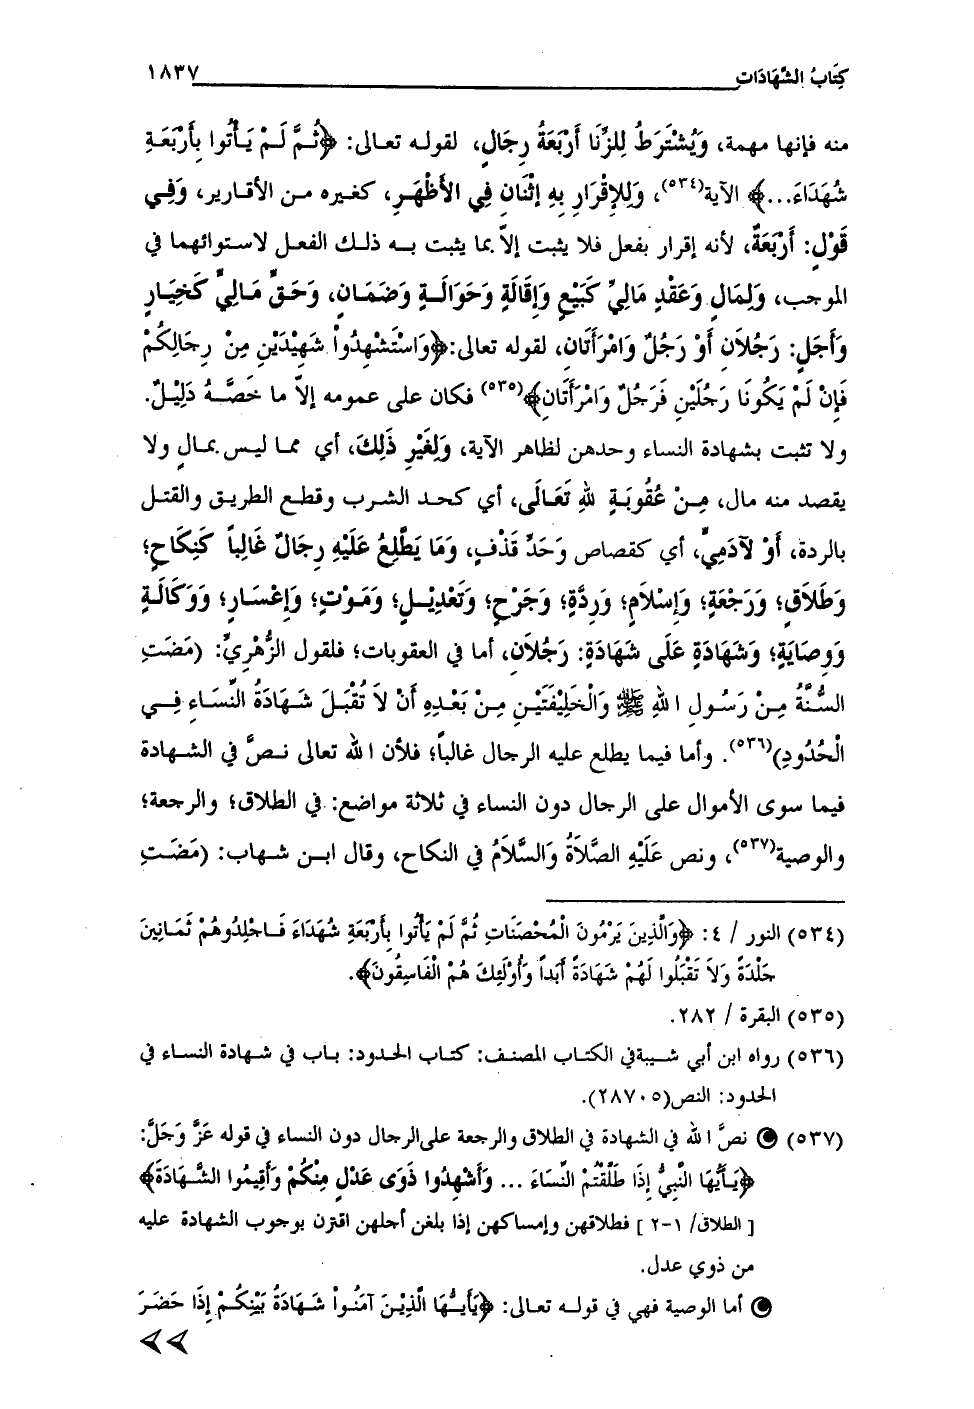 كِتَابُ الشَّهَادَاتِ ١٨٣٧
منه فإنها مهمة، وَيُشْتَرَطُ لِلزِّنَا أَرْبَعَةُ رِجَالٍ، لقوله تعالى: ﴿ثُمَّ لَمْ يَأْتُوا بِأَرْبَعَةِ
شُهَدَاءَ...﴾ الآية(٥٣٤)، وَلِلإِقْرَارِ بِهِ إِثْنَانِ فِي الأَظْهَرِ، كغيره من الأقارير، وَفِي
قَوْلٍ: أَرْبَعَةٌ، لأنه إقرار بفعل فلا يثبت إلاّ بما يثبت به ذلك الفعل لاستوائهما في
الموجب، وَلِمَالٍ وَعَقْدٍ مَالِيٍّ كَبَيْعٍ وَإِقَالَةٍ وَحَوَالَةٍ وَضَمَانٍ، وَحَقٍّ مَالِيٍّ كَخِيَارٍ
وَأَجَلٍ: رَجُلاَنِ أَوْ رَجُلٌ وَامْرَأَتَانِ، لقوله تعالى:﴿وَاسْتَشْهِدُواْ شَهِيْدَيْنِ مِنْ رِجَالِكُمْ
فَإِنْ لَمْ يَكُونَا رَجُلَيْنِ فَرَجُلٌ وَامْرَأَتَانِ﴾(٥٣٥) فكان على عمومه إلاّ ما خَصَّهُ دَلِيْلٌ.
ولا تثبت بشهادة النساء وحدهن لظاهر الآية، وَلِغَيْرِ ذَلِكَ، أي مما ليس بمالٍ ولا
يقصد منه مال، مِنْ عُقُوبَةٍ لِلّهِ تَعَالَى، أي كحد الشرب وقطع الطريق والقتل
بالردة، أَوْ لآدَمِيٍّ، أي كقصاص وَحَدِّ قَذْفٍ، وَمَا يَطَّلِعُ عَلَيْهِ رِجَالٌ غَالِباً كَنِكَاحٍ؛
وَطَلاَقٍ؛ وَرَجْعَةٍ؛ وَإِسْلاَمٍ؛ وَرِدَّةٍ؛ وَجَرْحٍ؛ وَتَعْدِيْلٍ؛ وَمَوْتٍ؛ وَإِعْسَارٍ؛ وَوَكَالَةٍ
وَوِصَايَةٍ؛ وَشَهَادَةٍ عَلَى شَهَادَةٍ: رَجُلاَنِ، أما في العقوبات؛ فلقول الزُّهْرِيِّ: (مَضَتِ
السُّنَّةُ مِنْ رَسُولِ اللهِ ﷺ وَالْخَلِيْفَتَيْنِ مِنْ بَعْدِهِ أَنْ لاَ تُقْبَلَ شَهَادَةُ النِّسَاءِ فِي
الْحُدُودِ)(٥٣٦). وأما فيما يطلع عليه الرجال غالباً؛ فلأن الله تعالى نصَّ في الشهادة
فيما سوى الأموال على الرجال دون النساء في ثلاثة مواضع: في الطلاق؛ والرجعة؛
والوصية(٥٣٧)، ونص عَلَيْهِ الصَّلاَةُ وَالسَّلاَمُ في النكاح، وقال ابن شهاب: (مَضَتِ
(٥٣٤) النور / ٤: ﴿وَالَّذِينَ يَرْمُونَ الْمُحْصَنَاتِ ثُمَّ لَمْ يَأْتُوا بِأَرْبَعَةِ شُهَدَاءَ فَاجْلِدُوهُمْ ثَمَانِينَ
جَلْدَةً وَلاَ تَقْبَلُوا لَهُمْ شَهَادَةً أَبَداً وَأُوْلَئِكَ هُمْ الْفَاسِقُونَ﴾.
(٥٣٥) البقرة / ٢٨٢.
(٥٣٦) رواه ابن أبي شيبةفي الكتاب المصنف: كتاب الحدود: باب في شهادة النساء في
الحدود: النص(٢٨٧٠٥).
(٥٣٧) نصَّ الله في الشهادة في الطلاق والرجعة على الرجال دون النساء في قوله عَزَّ وَجَلَّ:
﴿يَاأَيُّهَا النَّبِيُّ إِذَا طَلَّقْتُمْ النِّسَاءَ ... وَأَشْهِدُوا ذَوَى عَدْلٍ مِنْكُمْ وَأَقِيمُوا الشَّهَادَةَ﴾
[ الطلاق/ ١-٢ ] فطلاقهن وإمساكهن إذا بلغن أجلهن اقترن بوجوب الشهادة عليه
من ذوي عدل.
أما الوصية فهي في قوله تعالى: ﴿يَأَيُّهَا الَّذِيْنَ آمَنُواْ شَهَادَةُ بَيْنِكُمْ إِذَا حَضَرَ